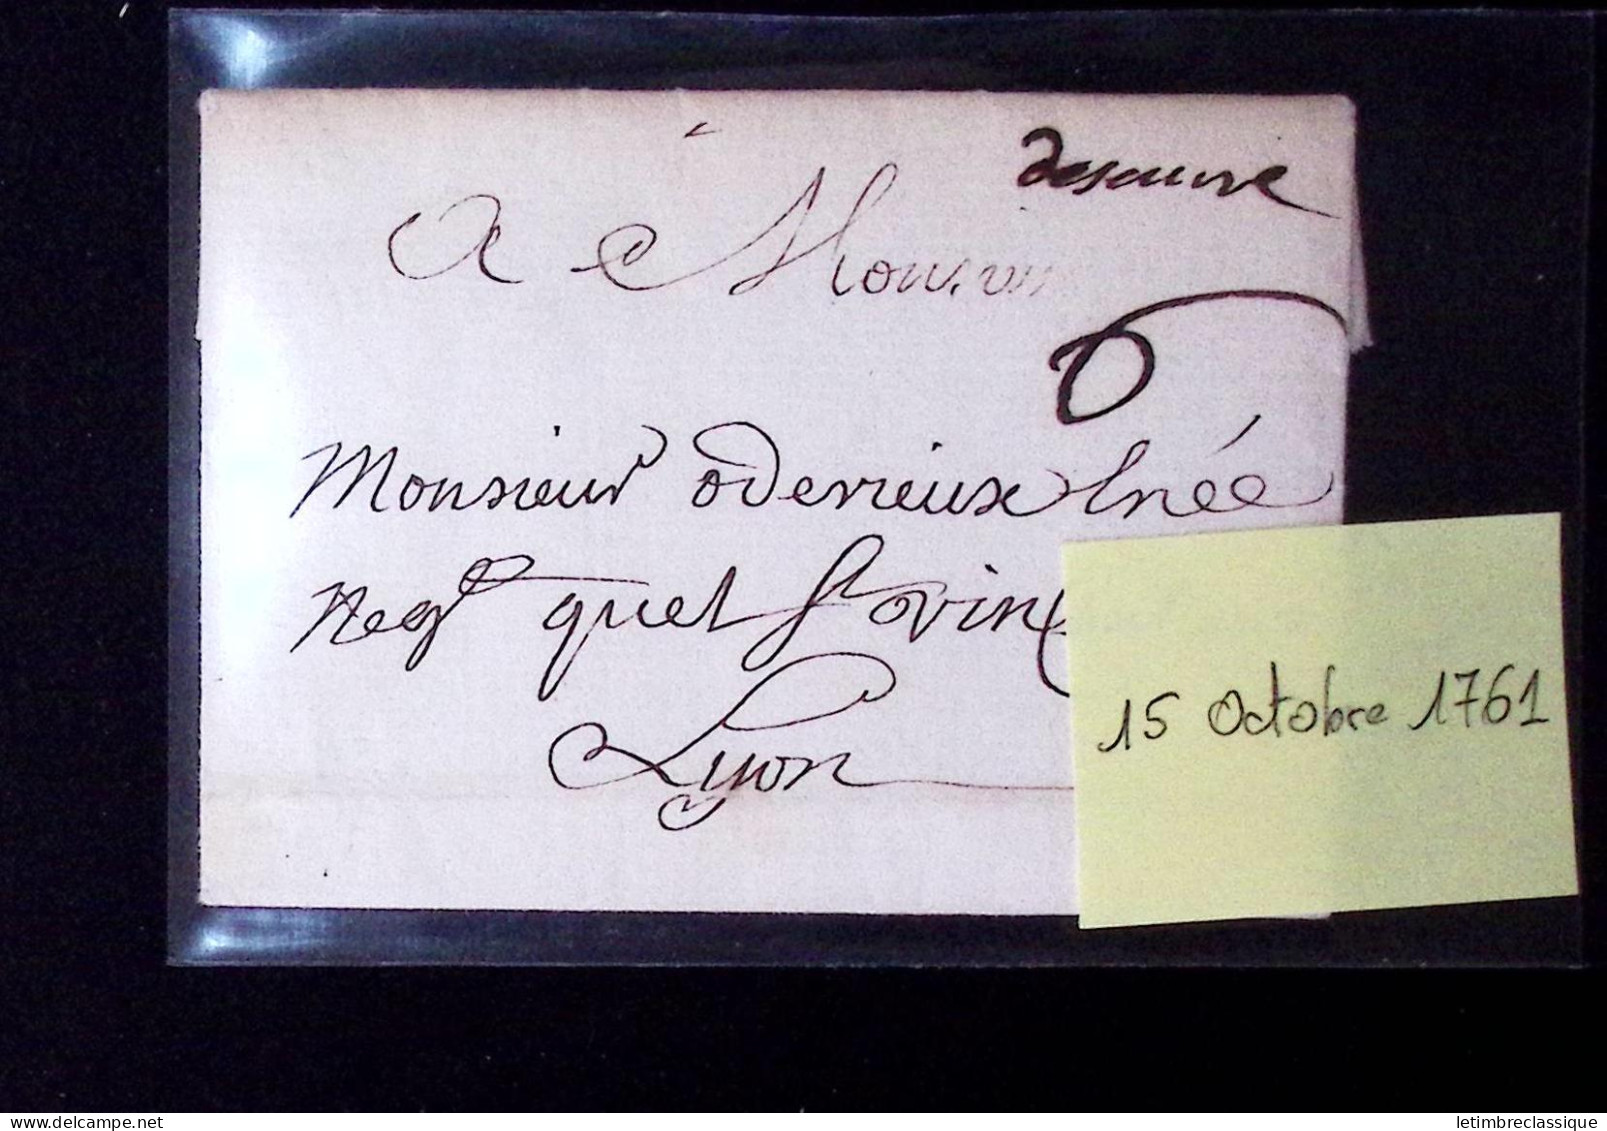 desauve
A Monsieur
6
Monsieur oderieux lnée
Neg.t quet St vin
Lyon
15 Octobre 1761
delcampe.net
letimbreclassique